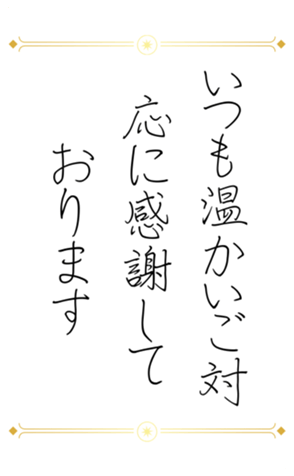 いつも温かいご対
応に感謝して
おります